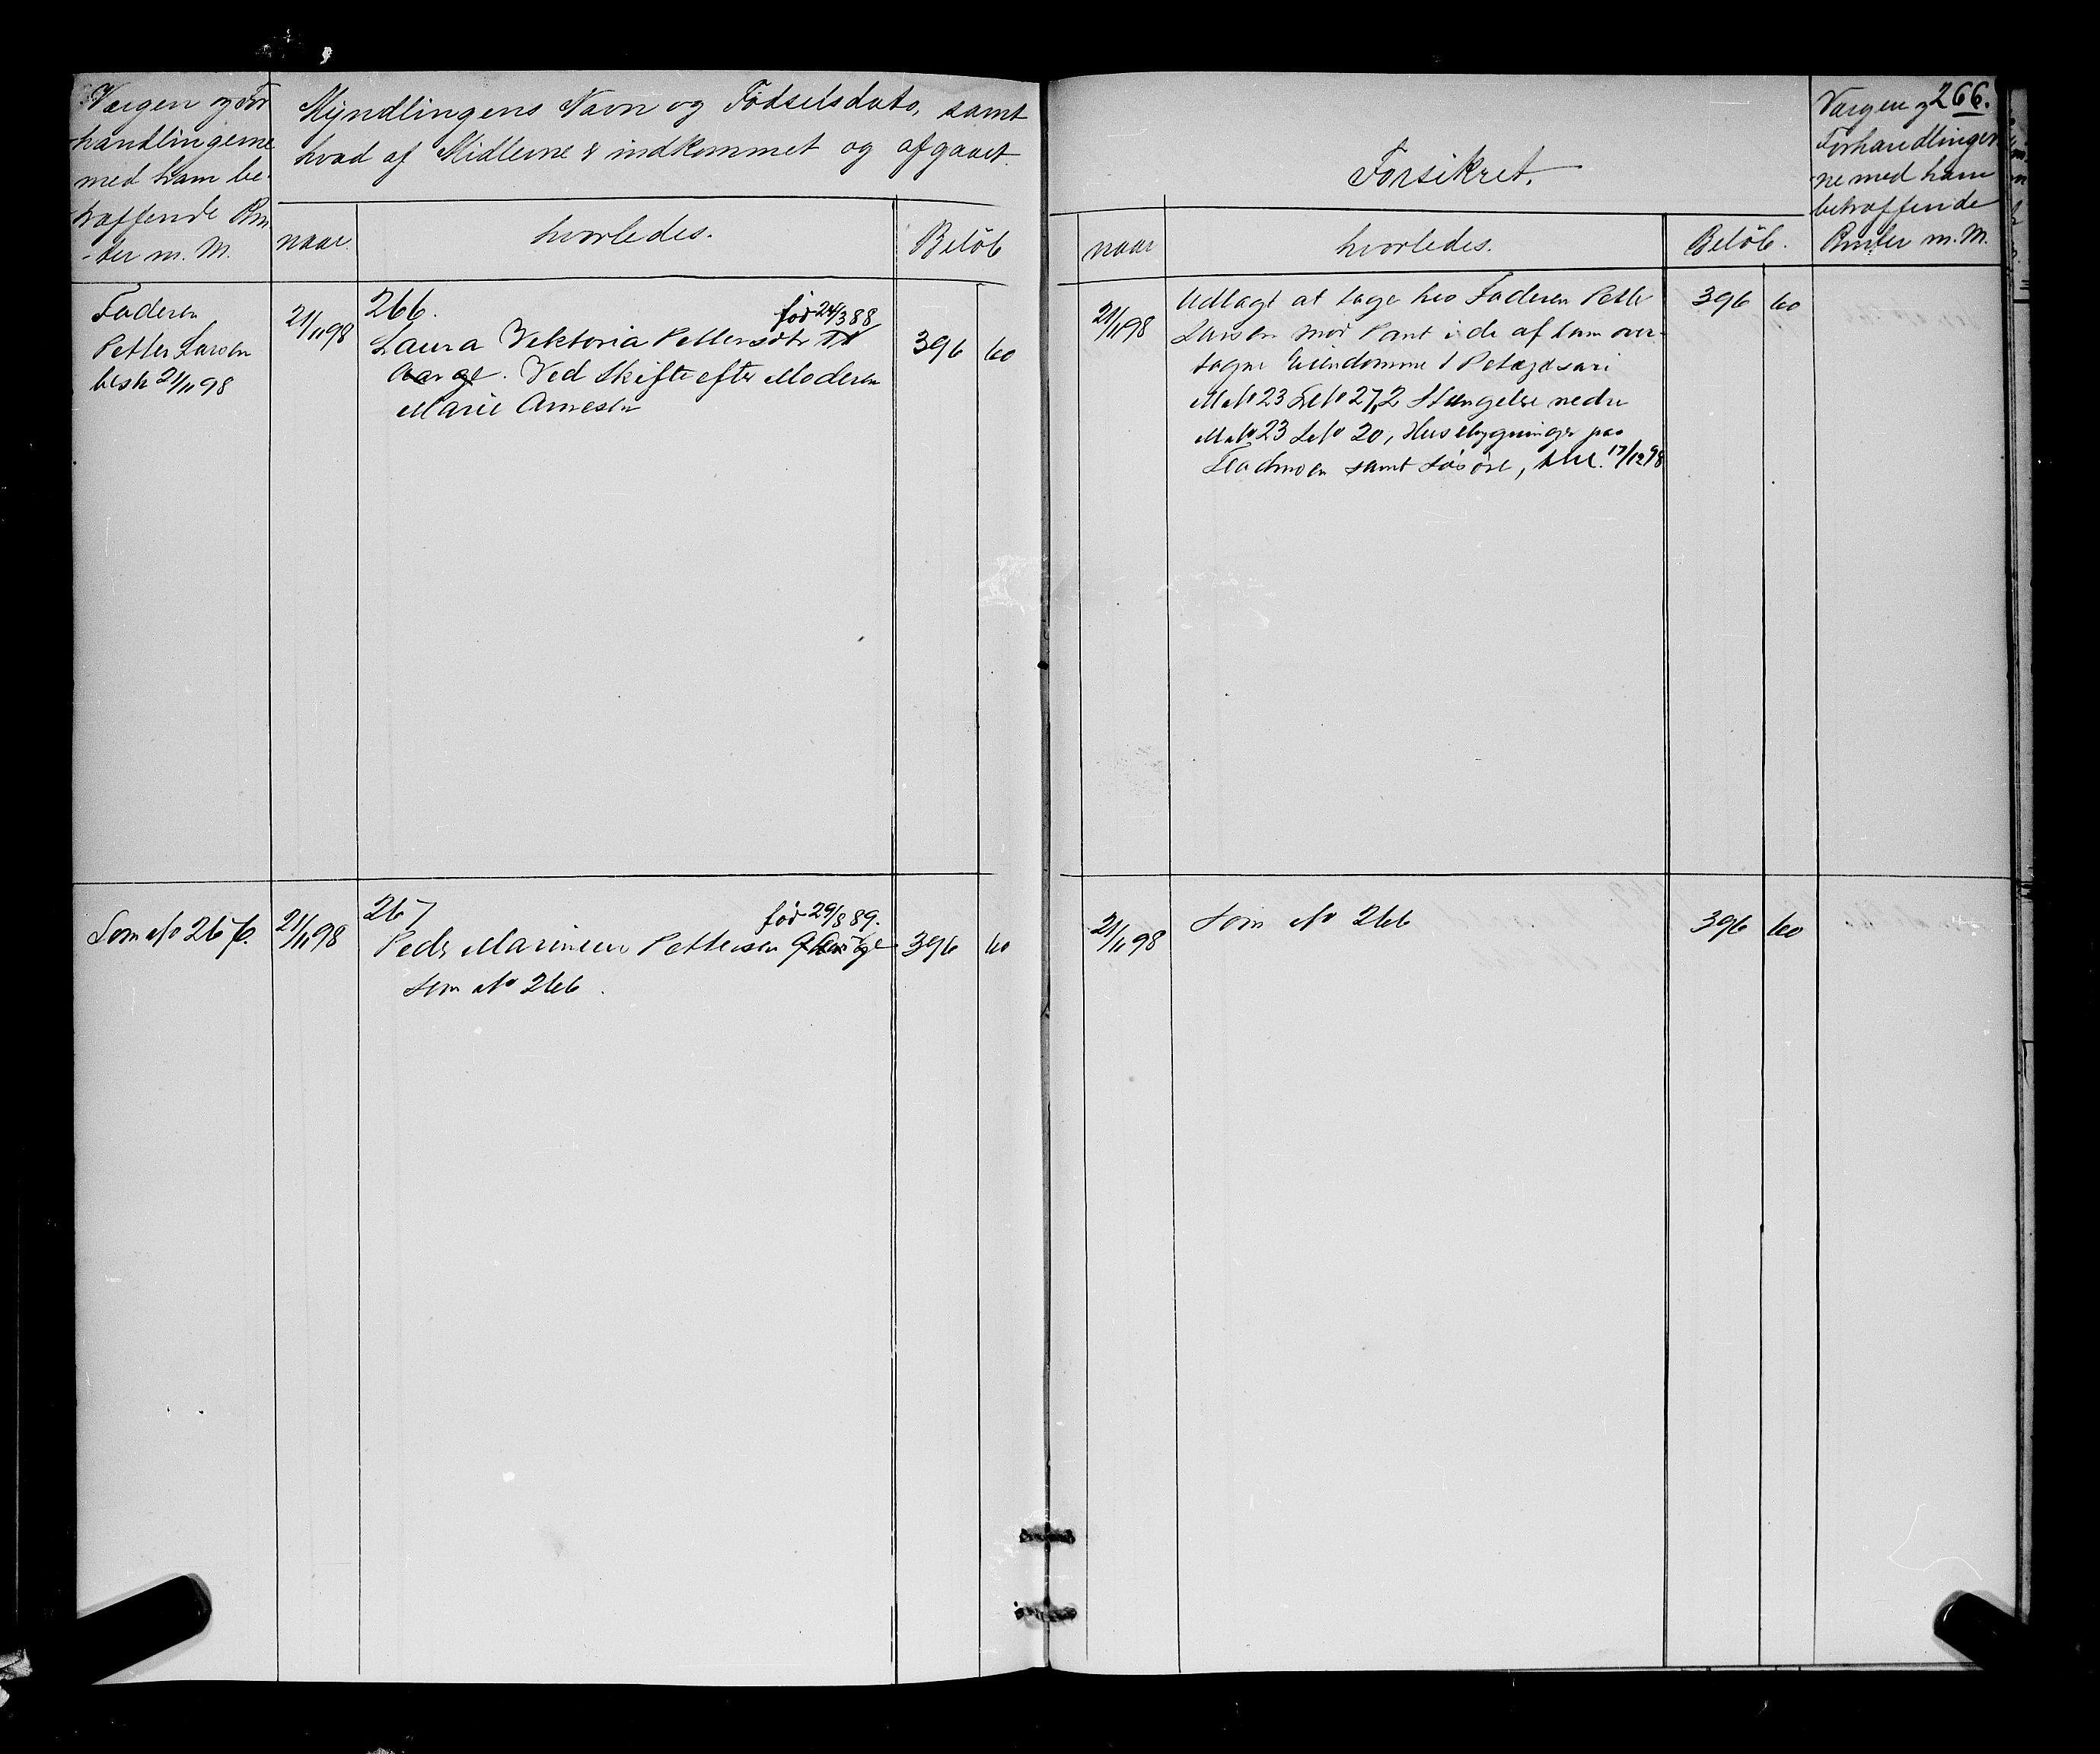 266.
Værgen og For
handlingerne
med ham be-
træffende Ren
-ter m. M.
Myndlingens Navn og Fødselsdato, samt
hvad af Midlerne er indkommet og afgaaet.
naar.
hvorledes.
Beløb
Forsikret.
naar
hvorledes.
Beløb.
Værgen og
Forhandlinger
ne med ham
betræffende
Renter m. M.
Faderen
Petter Larsen
besk 21/11 98
21/11 98
266.
født 24/3 88
Laura Viktoria Pettersdtr
Aar gl. Ved Skifte efter Moderen
Marie Arnesdtr
396 60
21/11 98
Udlagt at tage hos Faderen Petter
Larsen mod Pant i de af ham over-
tagne Eiendomme
M No 23 L No 27,2 Stengelse nedre
M No 23 L No 20, Husebygninger paa
samt Løsøre, 17/12 98
396 60
Som No 266.
21/11 98
267
født 29/8 89.
Peder Marinius Pettersen 9 Aar gl
Som No 266.
396 60
21/11 98
Som No 266
396 60